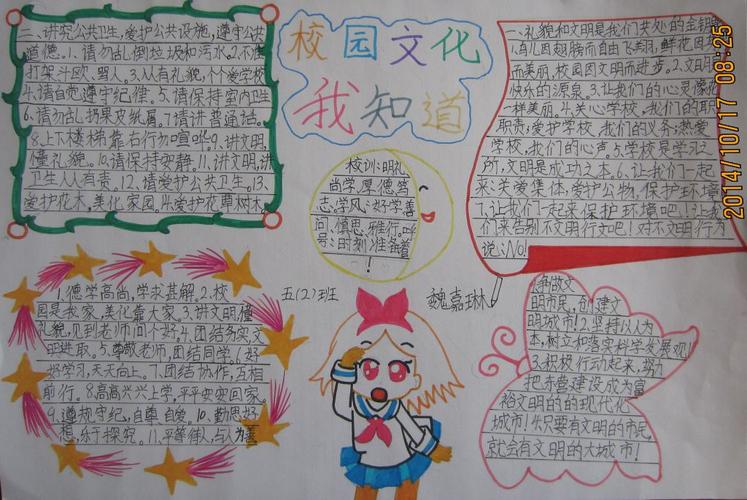 校园文化
我知道
二、讲究公共卫生,爱护公共设施,遵守公共
道德。1.请勿乱倒垃圾和污水。2.不准
打架斗殴、骂人。3.人人有礼貌,个个爱学校
4.请自觉遵守纪律。5.请保持室内卫生
6.请勿乱扔果皮纸屑。7.请讲普通话。
8.上下楼梯靠右行勿喧哗。9.讲文明,
懂礼貌。10.请保持安静。11.讲文明,讲
卫生人人有责。12.请爱护公共卫生。13.
爱护花木,美化家园。14.爱护花草树木。
校训:明礼
尚学,厚德笃
志。学风:好学善
问、慎思、雅行。口
号:时刻准备着
!
一、礼貌和文明是我们共处的金钥匙
1.鸟儿因翅膀而自由飞翔,鲜花因
而美丽,校园因文明而进步。2.文明是
快乐的源泉。3.让我们的心灵像花
一样美丽。4.关心学校,我们的职
职责;爱护学校,我们的义务;热爱
学校,我们的心声。5.学校是学习之
所,文明是成功之本。6.让我们一起
来:关爱集体,爱护公物,保护环境
7.让我们一起来保护环境吧!让我
们来告别不文明行为吧!对不文明行为
说:No!
2014/10/17 08:25
五(2)班
魏嘉琳
1.德学高尚,学求甚解。2.校
园是我家,美化靠大家。3.讲文明懂
礼貌,见到老师问个好。4.团结务实,文
明进取。5.尊敬老师,团结同学。6.好
好学习,天天向上。7.团结协作,互相
前行。8.高高兴兴上学,平平安安回家。
9.遵规守纪,自尊自爱。10.勤思好
想,乐于探究。11.平等待人,与人为善
1.争做文
明市民,创建文
明城市!2.坚持以人为
本,树立和落实科学发展观!
3.积极行动起来,努力
把赤壁建设成为富
裕文明的的现代化
城市!4.只要有文明的市民,
就会有文明的大城市!